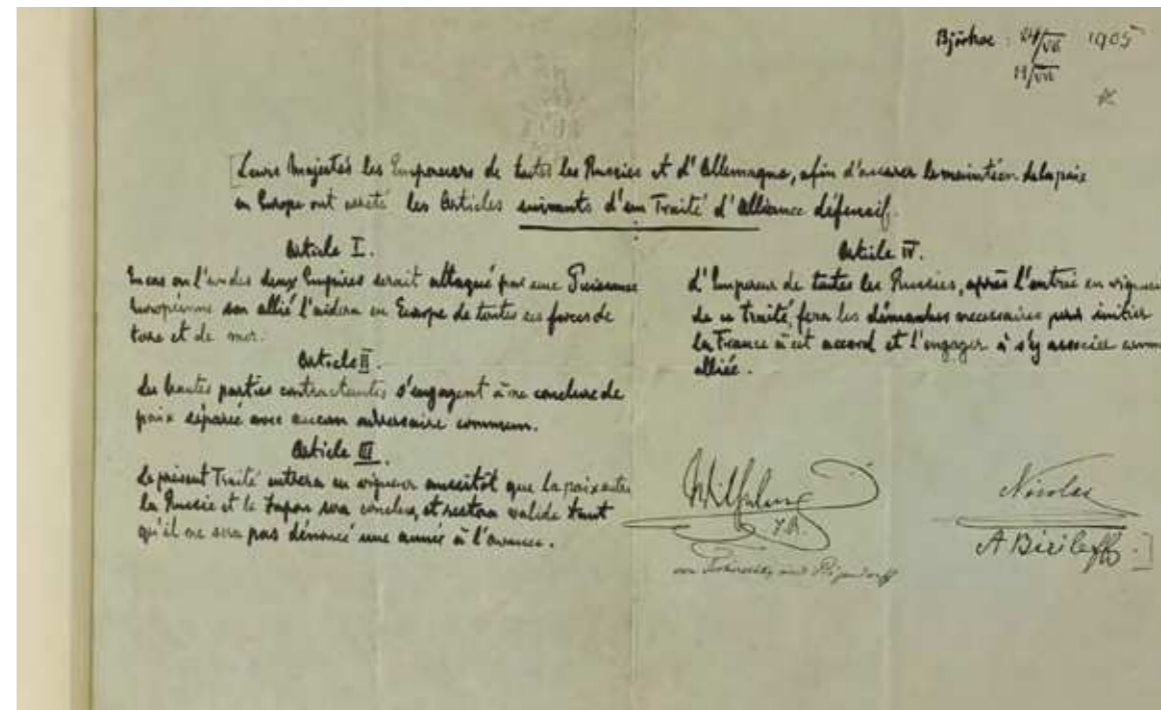 Björkoe : 24/VII 1905
11/VII
Leurs Majestés les Empereurs de toutes les Russies et d'Allemagne, afin d'assurer le maintien de la paix
en Europe ont arrêté les Articles suivants d'un Traité d'Alliance défensif.
Article I.
En cas où l'un des deux Empires serait attaqué par une Puissance
Européenne son allié l'aidera en Europe de toutes ses forces de
terre et de mer.
Article II.
Les hautes parties contractantes s'engagent à ne conclure de
paix séparée avec aucun adversaire commun.
Article III.
Le présent Traité entrera en vigueur aussitôt que la paix entre
la Russie et le Japon sera conclue, et restera valide tant
qu'il ne sera pas dénoncé une année à l'avance.
Article IV.
L'Empereur de toutes les Russies, après l'entrée en vigueur
de ce traité, fera les démarches necessaires pour initier
la France à cet accord et l'engager à s'y associer comme
alliée.
Wilhelm
I.R.
von Tschirschky und Bögendorff
Nicolas
A Birileff.